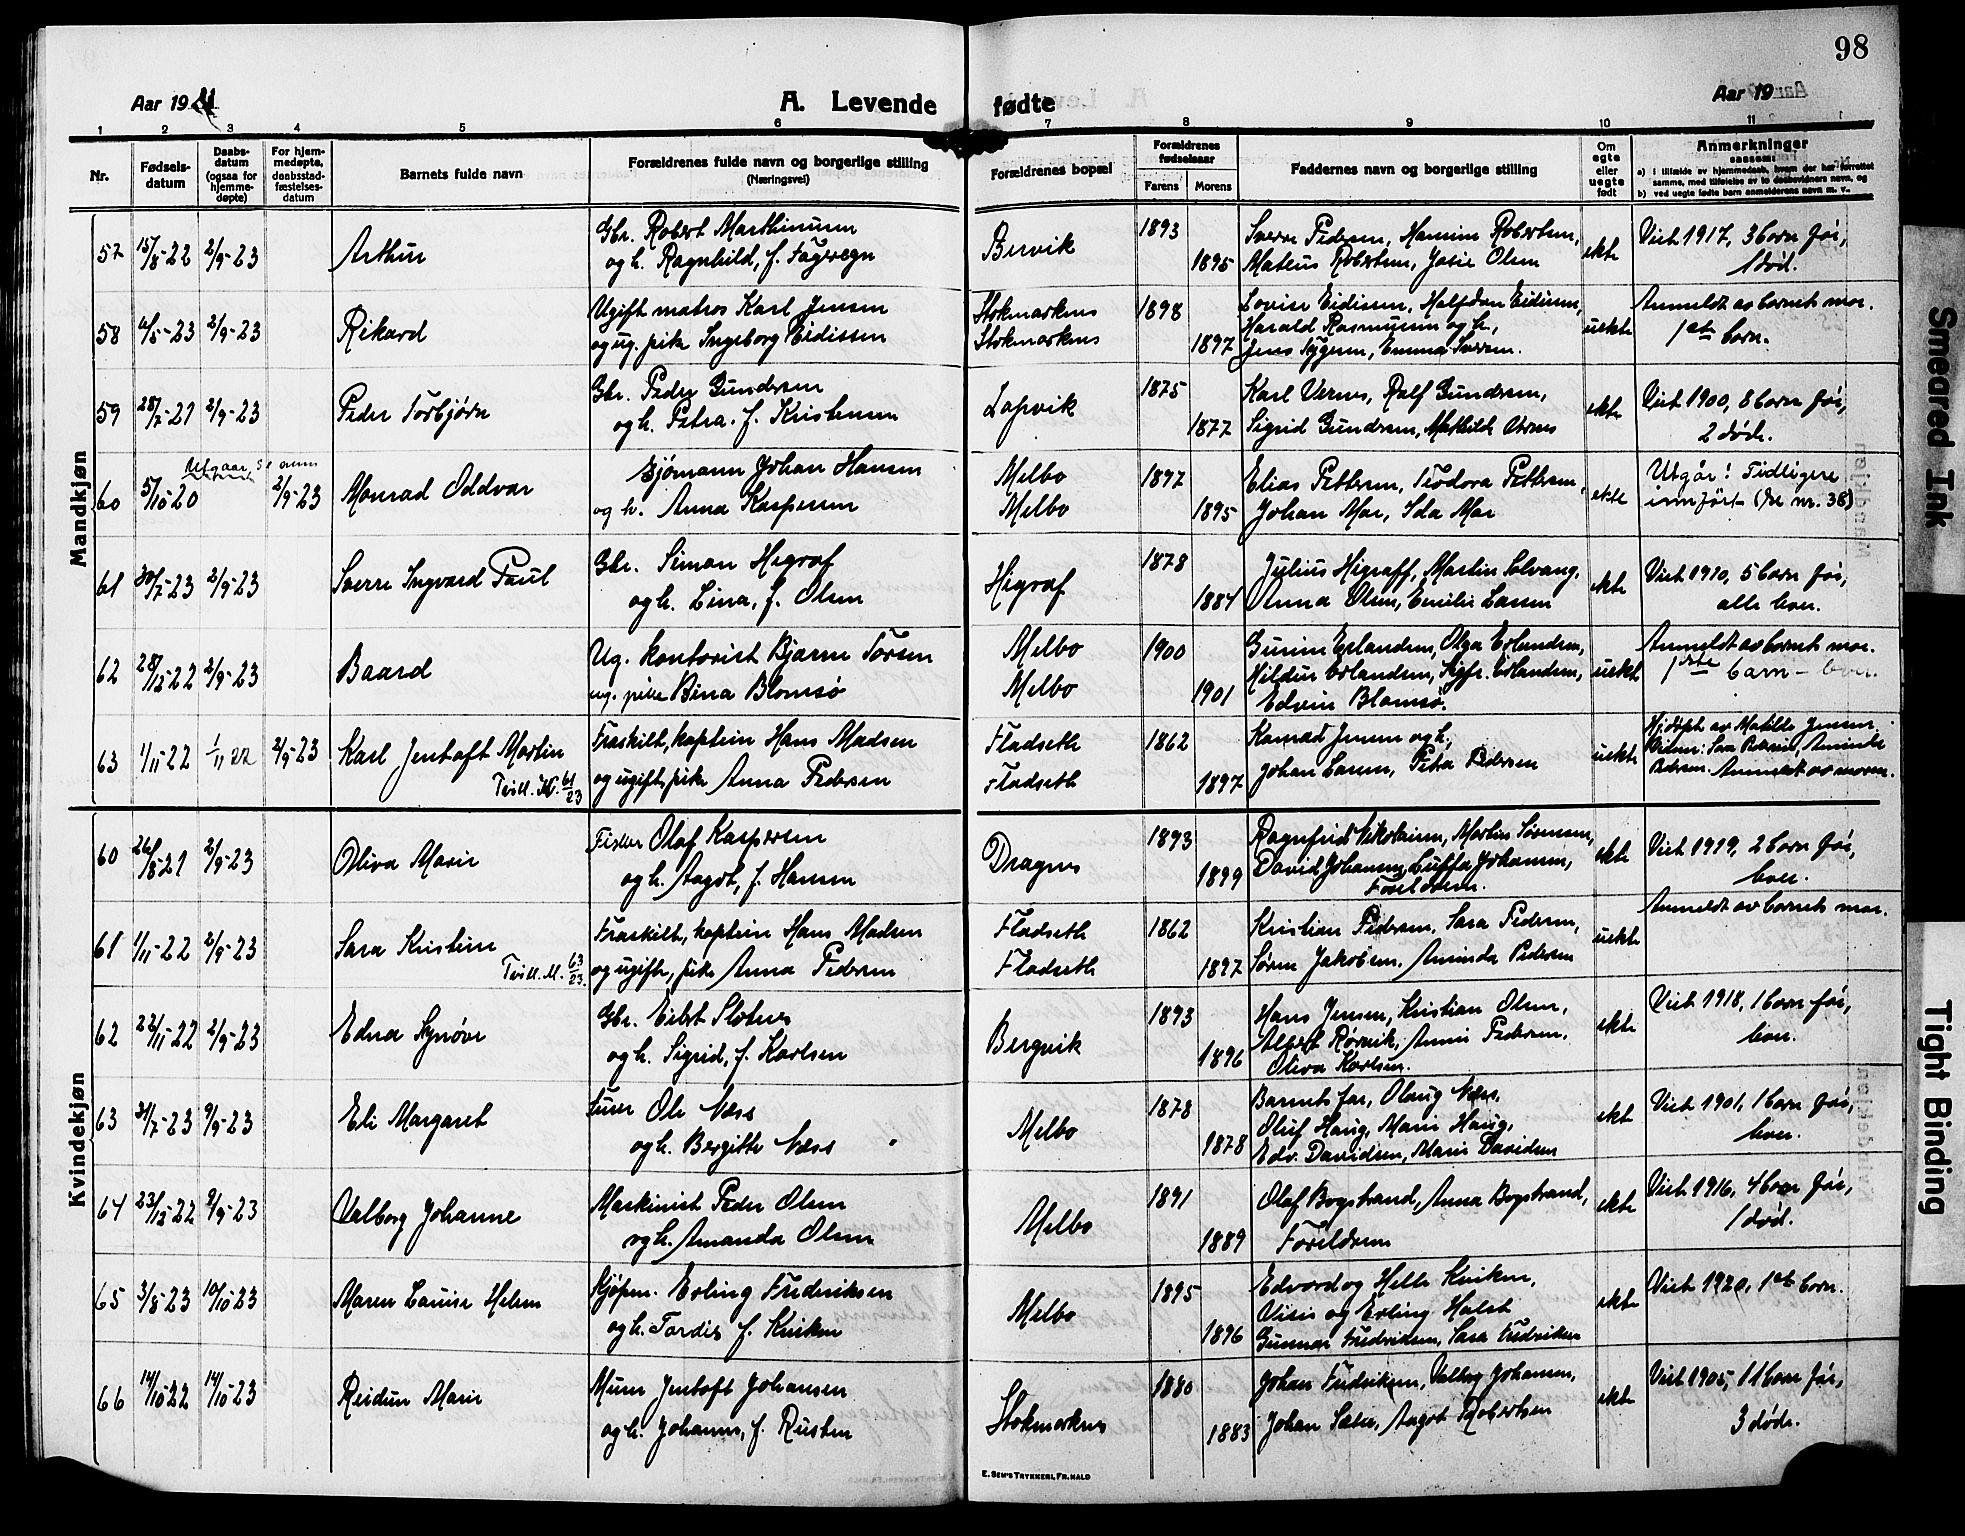 98
Aar 19
A. Levende fødte
Aar 19
1 2 3 4 5 6 7 8 9 10 11
Nr.
Fødsels-
datum
Daabs-
datum
(ogsaa for
hjemme-
døpte)
For hjem-
medøpte,
daabsstad-
fæstelses-
datum
Barnets fulde navn
Forældrenes fulde navn og borgerlige stilling
(Næringsvei)
Forældrenes bopæl
Forældrenes
fødselsaar
Farens Morens
Faddernes navn og borgerlige stilling
Om
egte
eller
uegte
født
Anmerkninger
saasom:
a) i tilfælde av hjemmedaab, hvem der har forrettet
samme, med tilføielse av to daabsvidners navn, og
b) ved uegte fødte barn anmelderens navn m. v.
Mandkjøn
57 15/8-22 2/9-23 Arthur
Gbr. Robert Marthinusen
og h. Ragnhild, f. Fageregn
1893
1895
Sverre Pedersen, Hansine Robertsen,
Mateus Robertsen, Josie Olsen
ekte
Viet 1917, 3 born før,
1 død.
58 2/9-23 Rikard
Ugift matros Karl Jensen
og ug. pike Ingeborg Eidissen
Stokmarknes
Stokmarknes
1898
1897
Lovise Eidissen, Halfdan Eidissen,
Harald Rasmussen og h.,
Jens Nygren, Emma Iversen.
uekte
Anmeldt av barnets mor.
1st born.
59 28/7-21 2/9-23 Peder Torbjørn
Gbr. Peder Gundersen
og h. Petra. f. Kristensen
Lapvik
1875
1877
Karl Vernes, Rolf Gundersen,
Sigrid Gundersen, Mathilde
ekte
Viet 1900, 8 born før,
2 døde.
60 5/10-20 Utgaar, 2/9-23 Monrad Oddvar
Sjømann Johan Hansen
og h. Anna Kaspersen
Melbo
Melbo
1897
1895
Elias Pettersen, Teodora Pettersen,
Johan Mar, Ida Mar
ekte
Utgår! Tidligere
innført (se nr. 38)
61 30/7-23 2/9-23 Sverre Ingvard Paul
Gbr. Simon Higraf
og h. Lina, f. Olsen
Higraf
1878
1884
Julius Higraff, Martin Solvang,
Anna Olsen, Emilie Lassen
ekte
Viet 1910, 5 born før,
alle lever.
62 28/12-22 2/9-23 Baard
Ug. kontorist Bjarne Torsen
ug. pike Bina Blomsø
Melbo
Melbo
1900
1901
Erlandsen, Olga Erlandsen,
Hildur Erlandsen, Sigfr. Erlandsen,
Edvin Blomsø.
uekte
Anmeldt av barnets mor.
1ste barn - lever.
63 1/11-22 1/11 22 2/9-23 Karl Jentoft Martin
Tvill. K. 61/23
Fraskilt, kaptein Hans Madsen
og ugifte, pike Anna Pedersen
Fladseth
Fladseth
1862
1897
Konrad Jensen og h.,
Johan Larsen, Petra Pedersen
uekte
Hj.døpt av Matilde Jensen.
Vidner: Sara Pedersen, Aminda
Pedersen. Anmeldt av moren.
Kvindekjøn
60 26/8-21 2/9-23 Oliva Marie
Fisker Olaf Kaspersen
og h. Aagot, f. Hansen
Dragnes
1893
1899
Ragnfrid Nikolaisen, Martin Sørensen,
David Johansen, Luffa Johansen,
Foreldrene.
ekte
Viet 1919, 2 born før,
lever.
61 1/11-22 2/9-23 Sara Kristine
Tvill. M. 63/23.
Fraskilt, kaptein Hans Madsen
og ugifte, pike Anna Pedersen
Fladseth
Fladseth
1862
1897
Kristian Pedersen, Sara Pedersen,
Søren Jakobsen, Aminda Pedersen
uekte
Anmeldt av barnets mor.
62 22/11-22 2/9-23 Edna Synøve
Gbr. Eilert Slotnes
og h. Sigrid, f. Karlsen
Bergvik
1893
1896
Hans Jensen, Kristian Olsen,
Albert Rørvik, Anni Pedersen.
Oliva Karlsen.
ekte
Viet 1918, 1 born før,
lever.
63 31/7-23 9/9-23 Eli Margaret
Ole Næss
og h. Bergitte Næss
Melbo
1878
1878
Barnets far, Olaug Næss,
Oluf Haug, Marie Haug,
Edv. Davidsen, Marie Davidsen
ekte
Viet 1901, 1 born før,
lever.
64 23/12-22 9/9-23 Valborg Johanne
Maskinist Peder Olsen
og h. Amanda Olsen
Melbo
1891
1889
Olaf Bogstrand, Anna Bogstrand,
Foreldrene
ekte
Viet 1916, 4 born før,
1 død.
65 3/8-23 10/10-23 Maren Louise Helene
Kjøpm. Erling Frederiksen
og h. Tordis f. Kviken
Melbo
1895
1896
Edvard og Helle Kviken,
og Erling Halst
Gunnar Fredriksen, Sara Fredriksen
ekte
Viet 1920, 1st born.
66 14/10-22 14/10-23 Reidun Marie
Murer Jentoft Johansen
og h. Johanne, f. Rusten
Stokmarknes
1880
1883
Johan Fredriksen, Valborg Johansen,
Johan Sæter, Aagot Robertsen
ekte
Viet 1905, 11 born før,
3 døde.
E. Sem's Trykkeri, Fr.hald
Smeared Ink
Tight Binding